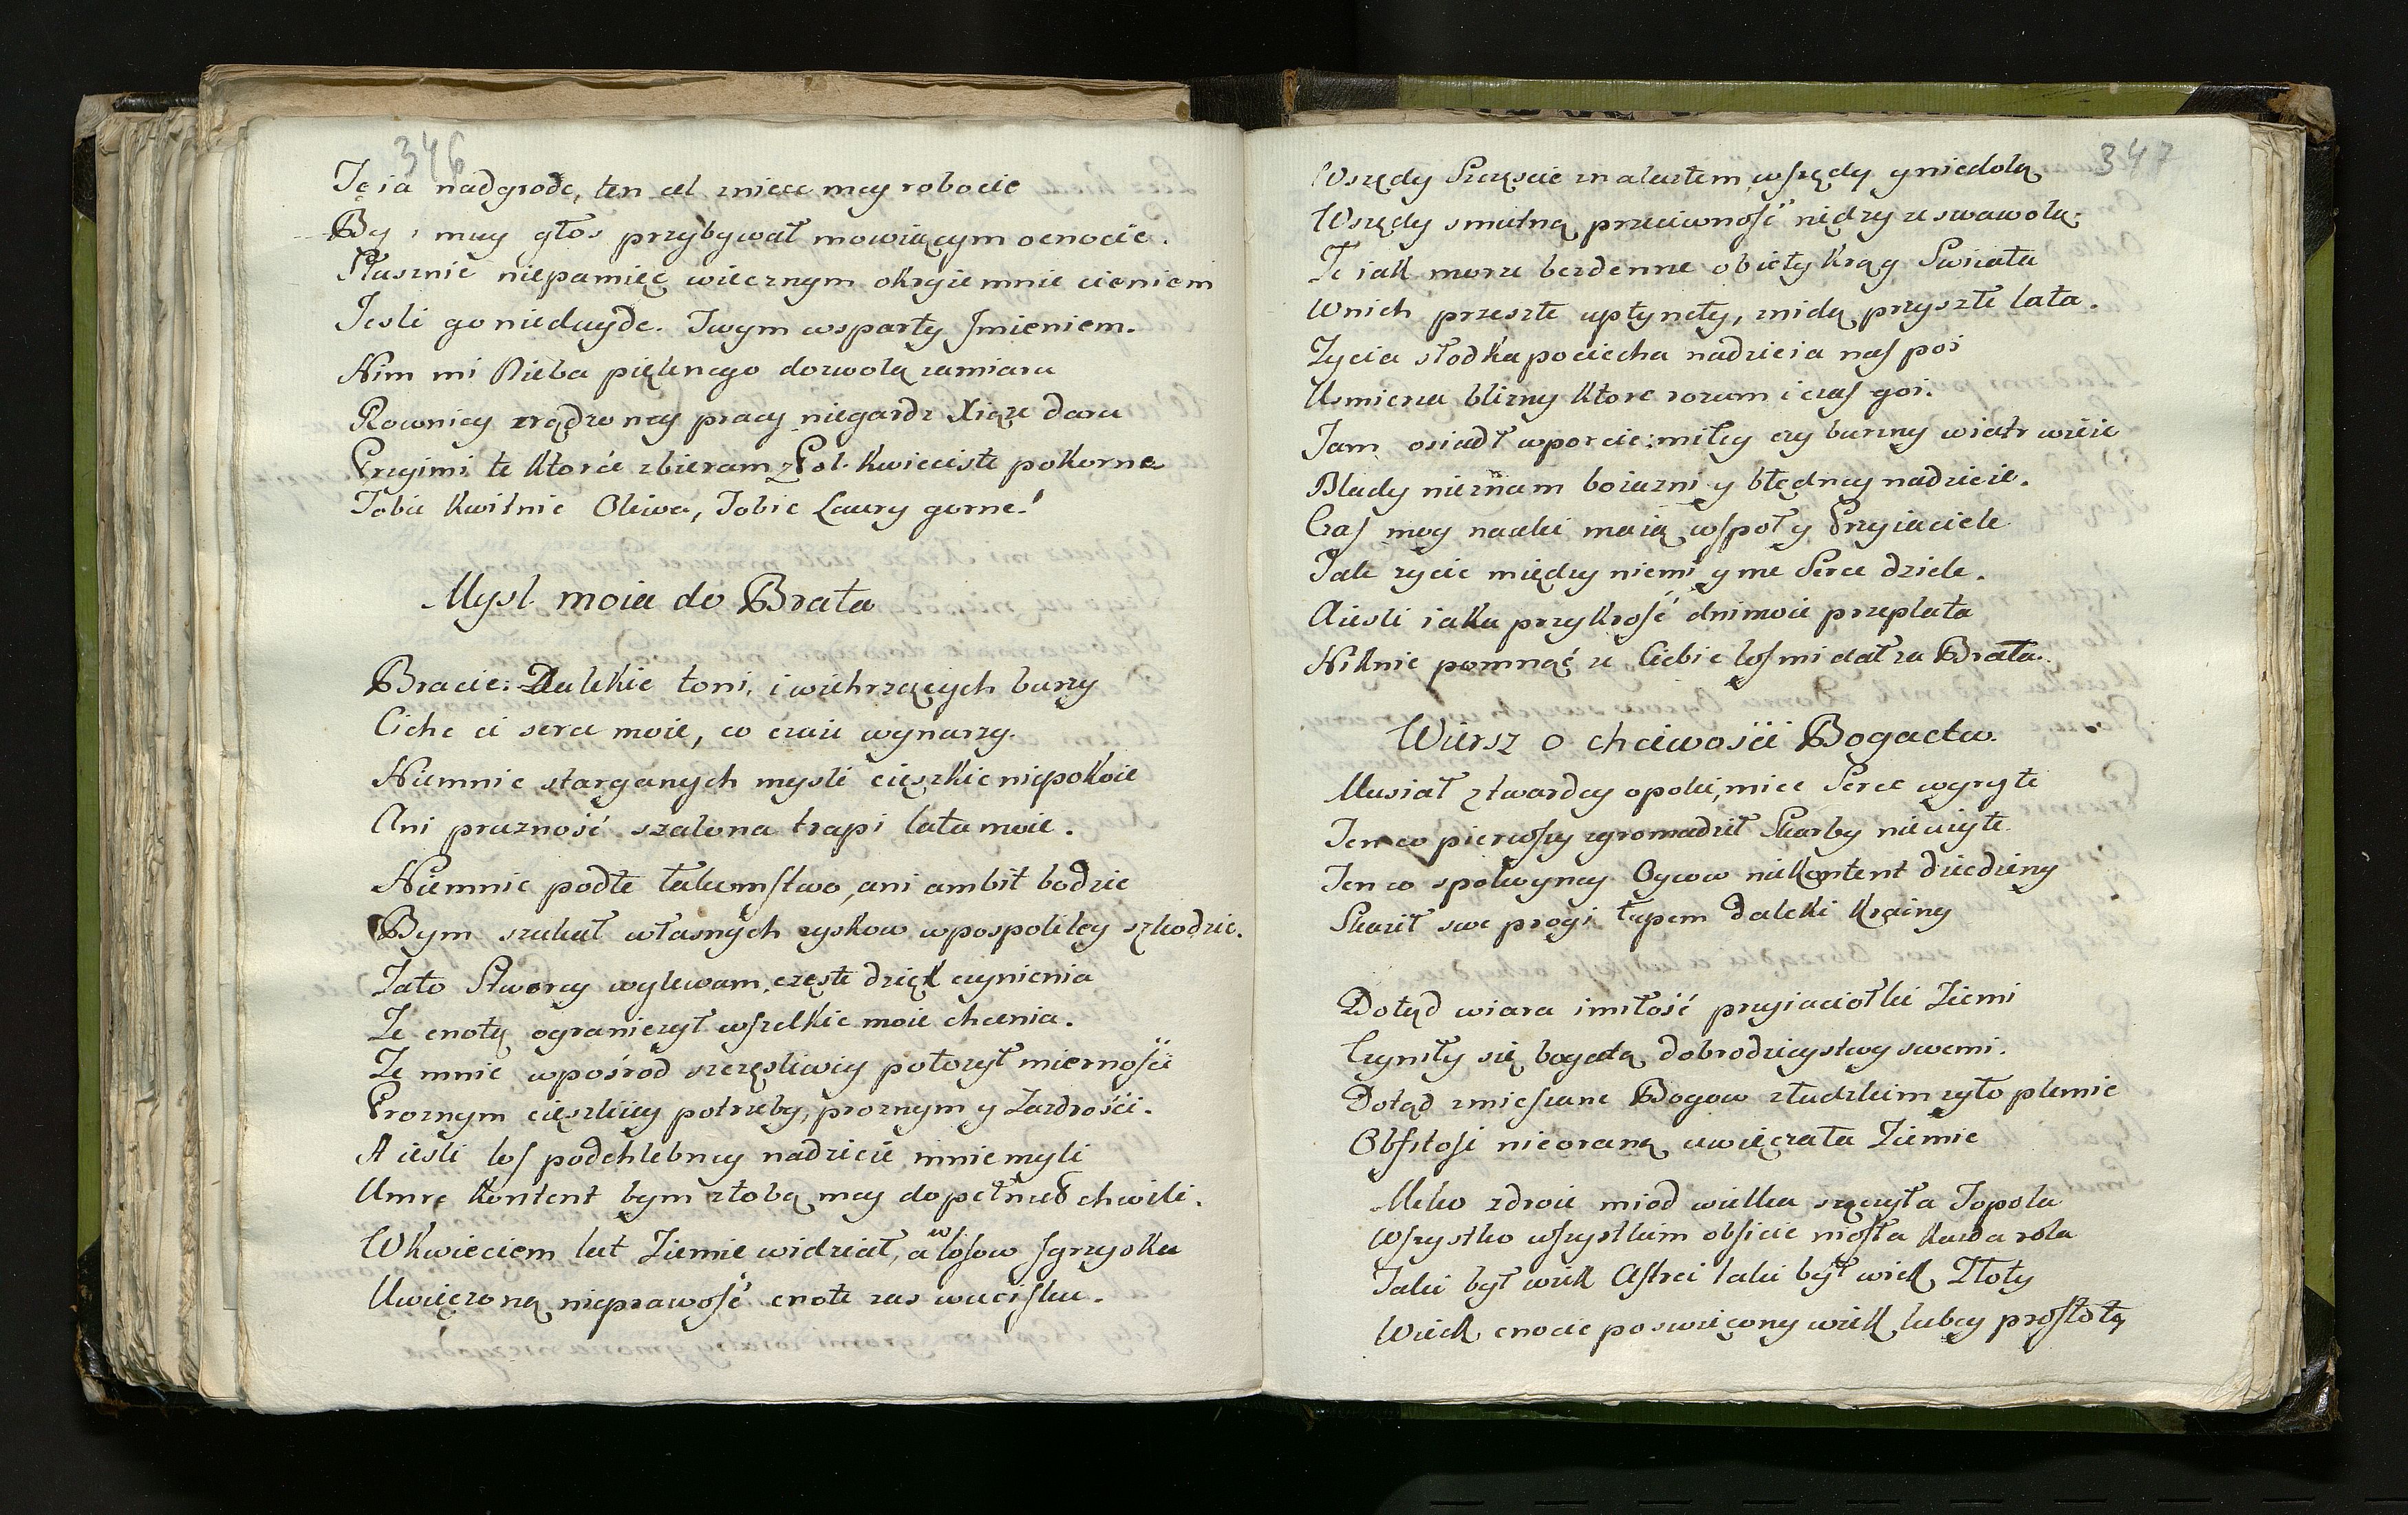 346
Tę ia nadgrodę, ten cel zniece mey robocie
By i muy głos przybywał mowiącym ocnocie.
Słusznie niepamięć wiecznym okryie mnie cieniem
Jesli go niedwydę. Twym wsparty Jmieniem.
Nim mi Nieba pięknego dozwolą zamiaru
Rownicy zrądzoney pracy niegardz Xiąże daru
Przyimi te ktorće zbieram z Pol. kwieciste pokorne
Tobie kwitnie Oliwa, Tobie Laury gorne!
Mysl moia do Brata
Bracie: Dalekie toni, i wichrzących burzy
Ciche ci serce moie, co czuie wynurzy.
Niemnie starganych mysli cięszkie niepokoie
Ani prożność szalona trapi lata moie.
Niemnie podłe łakomstwo, ani ambit bodzie
Bym szukał własnych zyskow wpospolitey szkodzie.
Zato Stworcy wylewam, częste dzięk czynienia
Że cnotą ograniczył wszelkie moie chcenia.
Że mnie wpośrod szczęsliwey położył miernośći
Proznym cięszkiey potrzeby, proznym y Zazdrośći.
A iesli los podchlebney nadzieie mnie myli
Umrę kontent bym złobą mey dopełnił chwili.
Wkwieciem lat Ziemie widział, a w losow Jgrzysku
Uwięczoną nieprawość cnotę zas wucisku.
347
Wszędy Szczęscie znalazłem, wszędy y niedolą
Wszędy smutną przeciwność nędzy ze swawolą;
Te iak morze bezdenne obięły krąg Swiata
Wnich przeszłe upłynęły, znidą przyszłe lata.
Życia słodka pociecha nadzieia nas poi
Usmierza blizny ktore rozum i czas goi.
Jam osiadł wporcie; miłey czy burzny wiatr wieie
Blady nieznam boiazni y błędney nadzieie.
Czas moy nauki maią wspoły Przyiaciele
Tak życie między niemi y me Serce dziele.
A iesli iaka przykrość dni moie przeplata
Niknie pomnąć że Ciebie los mi dał za Brata.
Wiersz o chciwośći Bogactw.
Musiał ztwardey opoki, miec Serce wyryte
Ten co pierwszy zgromadził Skarby nieużyte.
Ten co spokoyney Oycow niekontent dziedziny
Skaził swe progi łupem Daleki krainy
Dotąd wiara i miłość przyiaciołki Ziemi
Czyniły się bogatą dobrodzieystwy swemi.
Dotąd zmieszane Bogow zludzkim żyło plemie
Obfitość nieoraną uwięczała Ziemie
Mleko zdroie miod wielka sączyła Topola
Wszystko wszystkim obficie niosła każda rola
Taki był wiek Astrei taki był wiek Złoty
Wiek cnocie poswięcony wiek lubey prostoty